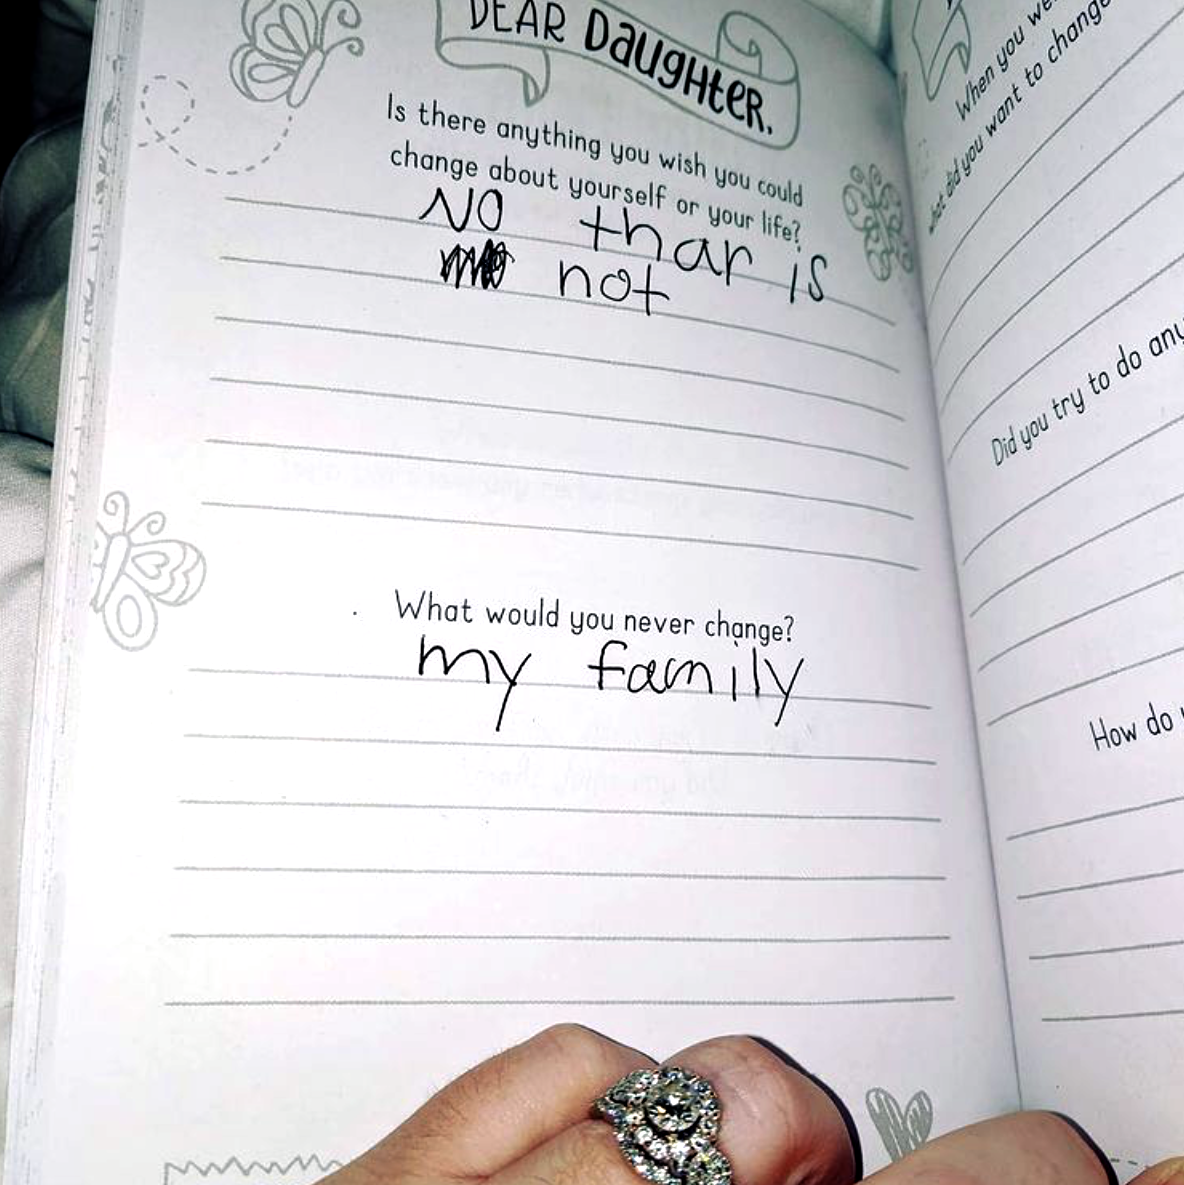 DEAR DaugHteR,
Is there anything you wish you could
change about yourself or your life?
NO thar is
not
What would you never change?
my family
When you we
hat did you want to change
Did you try to do any
How do